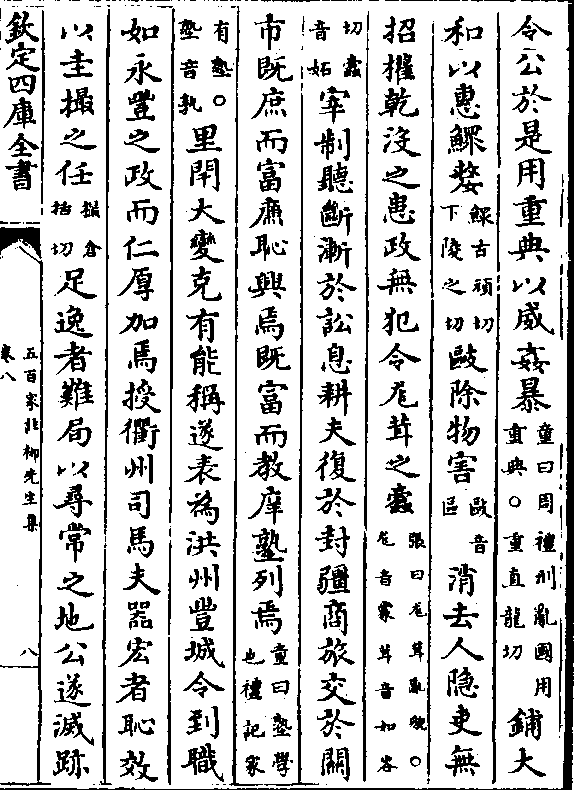 令公於是用重典以威姦暴童曰周禮刑亂國用重典○重直龍切鋪大
和以惠鰥嫠鰥古頑切下陵之切敺除物害敺音區消去人隐吏無
招權乾没之患政無犯令尨茸之蠧張曰尨茸亂皃○尨音蒙茸音如容
切蠧音妬宰制聽斷漸於訟息耕夫復於封疆商旅交於關
市既庶而富廉恥興焉既富而教庠塾列焉童曰塾學也禮記家
有塾○塾音孰里閈大變克有能稱遂表為洪州豐城令到職
如永豐之政而仁厚加焉授衢州司馬夫器宏者恥效
以圭撮之任撮倉括切足逸者難局以尋常之地公遂滅跡
欽定四庫全書
五百家註柳先生集
卷八
八